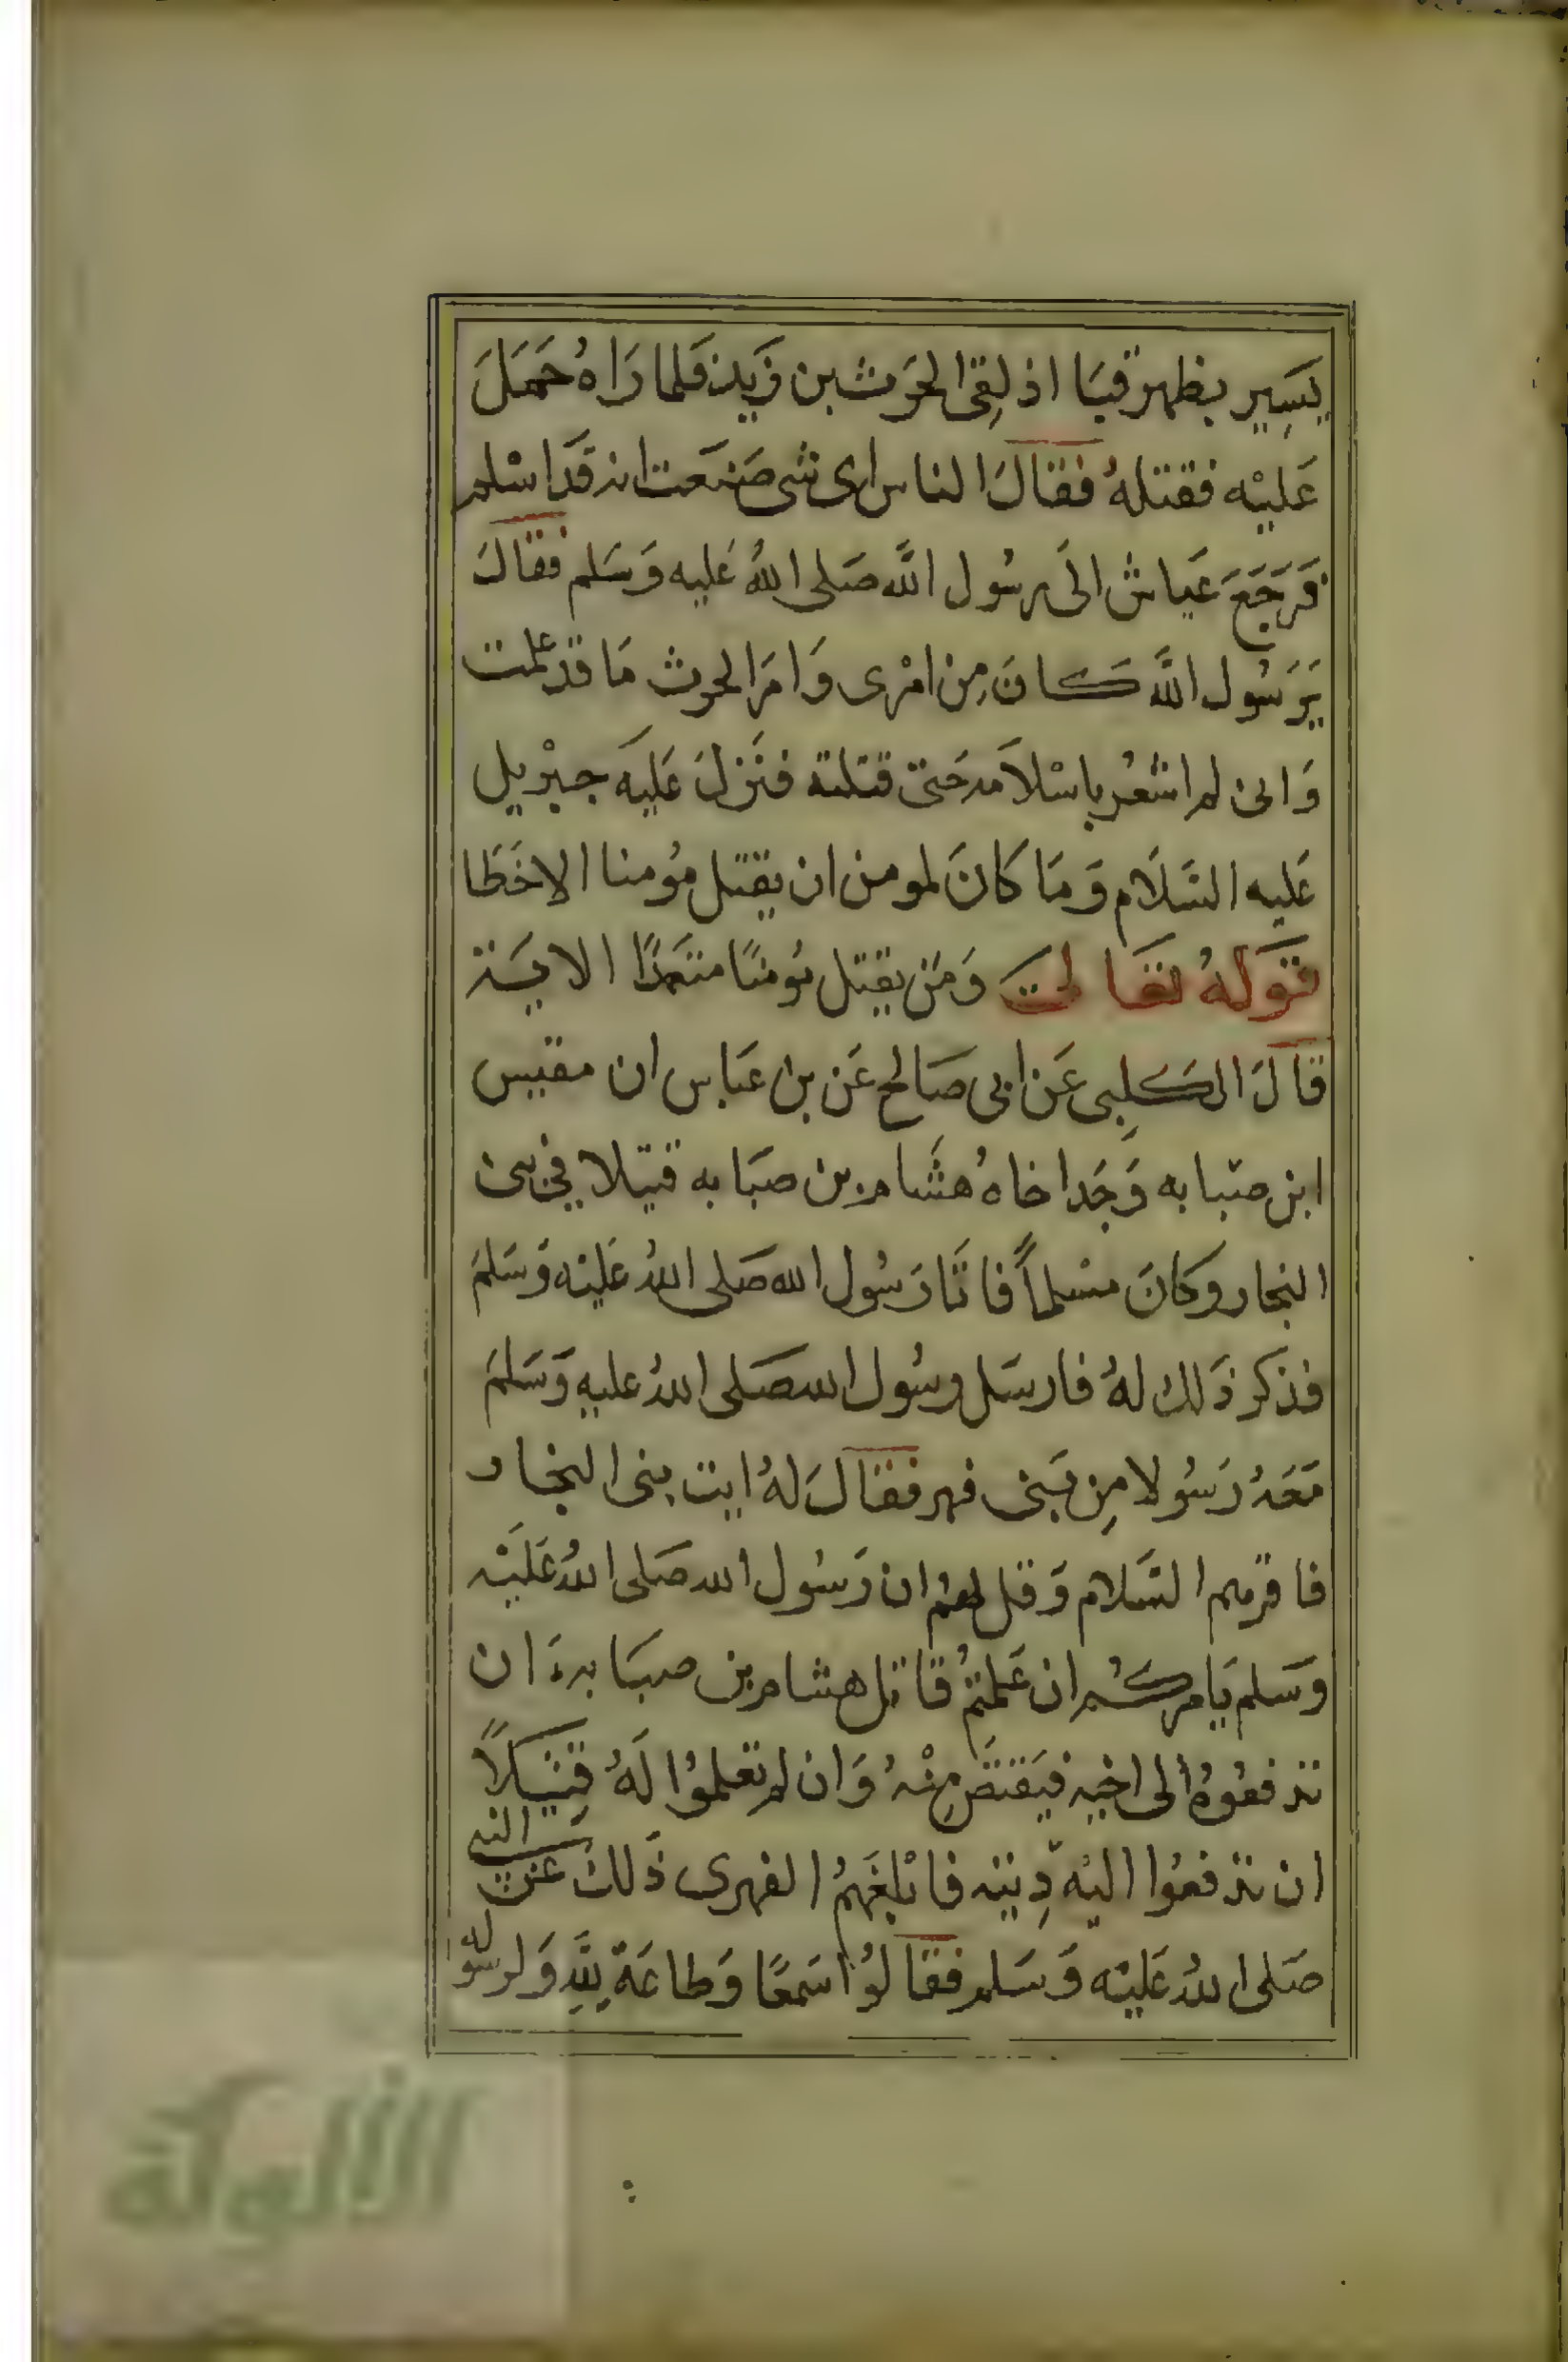 يَسِير بظهر قبَا اذ لِقى الحَرث بن زَيد فلما رَاهُ حَمَلَ
عَليْه فقتلهُ فقالَ الناس اى شى صَنعَت انه قَد اسْلم
فَرَجَعَ عَياش الَى رسُول اللَّه صَلى اللهُ عَليه وَسَلم فقالَ
يَرَسُول اللَّه كَانَ مِن امْرى وَامَر الحرث مَا قد علمت
وَانى لم اشعُر باسْلاَمه حَتى قتلته فنَزلَ عَليَه جبْريل
عَليه السَّلَام وَمَا كانَ لمومن ان يقتل مُومنا الاخَطَا
قَولهُ تعَالى وَمَن يقتل مُومنًا متعَمدًا الايَة
قالَ الكَلِبى عَن ابى صَالح عَن بن عبَاس ان مقيس
ابن صبَابه وَجَد اخاهُ هشَام بن صبَابه قتيلا في بنى
النجار وكانَ مسْلماً فاتَا رَسُول الله صَلى اللهُ عَليْه وَسَلمَ
فذَكر ذَلك لهُ فارسَل رسُول الله صَلى اللهُ عليهِ وَسَلمَ
مَعَهُ رَسُولا مِن بَنى فهر فقالَ لهُ ايت بنى النجار
فاقرهم السَّلام وَقل لهمُ ان رَسُول الله صَلى اللهُ عَليْه
وَسَلم يَامركُم ان عَلمتمُ قاتل هشام بن صبَابة ان
تدفعُوهُ الى اخيه فيَقتَص مِنْهُ وَان لم تعلموُا لَهُ قتيلاً
ان تدفعُوا اليْه دِيته فابْلغَهُم الفهرى ذَلك عَن النبى
صَلى اللهُ عَليْه وَسَلم فقالوُا سَمعًا وَطاعَة لِلَّهِ وَلرسُوله
الألوكة